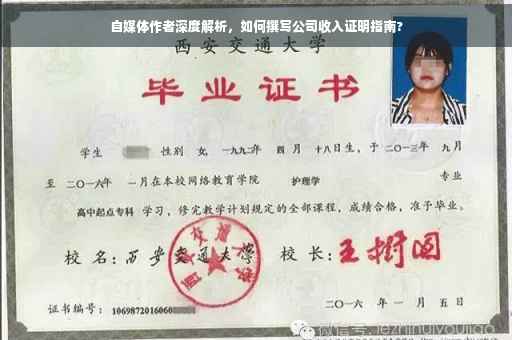 自媒体作者深度解析，如何撰写公司收入证明指南？
西安交通大学
毕业证书
学生 性别 女，一九九二年 四 月 十八日生，于 二〇一三年 九月
至 二〇一六年 一月在本校网络教育学院 护理学 专业
高中起点专科 学习，修完教学计划规定的全部课程，成绩合格，准予毕业。
校 名：西安交通大学 校 长：王树国
西安交通大学
证书编号：1069872016060
二〇一六 年 一 月 五 日
微信号: jezhihuiyoujiao